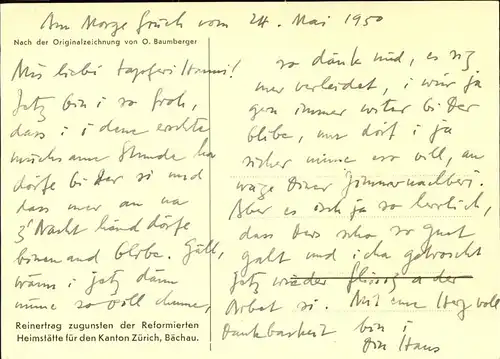 Am Morge früeh vom 24. Mai 1950
Nach der Originalzeichnung von O. Baumberger
Mis liebi tapferi Hanni!
Jetz bin i so froh,
dass i i dene erschte
müehsame Stunde ha
dörfe bi Der si und
dass mer an na
z'Nacht händ dörfe
binenand blibe. Gäll,
wänn i jetz dänn
nüme so voll chume,
Reinertrag zugunsten der Reformierten
Heimstätte für den Kanton Zürich, Bächau.
so dänk nüd, es sig
mer verleidet, i wür ja
gern immer witer bi Der
blibe, nur dörf i ja
sicher nüme so vill, an
wäge Diner Zimmernachberi.
Aber es isch ja so herrlich,
dass Ders scho so guet
gaht und i cha getroscht
jetz wieder flissig a der
Arbet si. Mit eme Herz voll
Dankbarkeit bin i
Din Hans